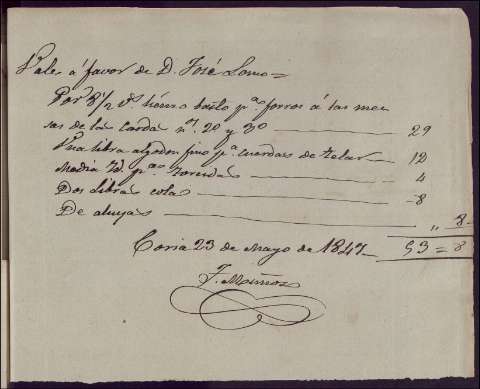 Vale á favor de D. José Lomo =
Por 8 1/2 v.s lienzo basto p.a forros á las me
sas de la Carda n.s 2o y 3o — 29
Una libra algodon fino p.a cuerdas de telar — 12
Media Id. p.a torcidas — 4
Dos libras cola — 8
De abujas — ,, 8
Coria 23 de Mayo de 1847 — 53 = 8
F. Muñoz